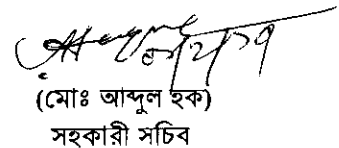 (মোঃ আব্দুল হক)
সহকারী সচিব